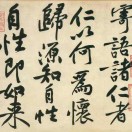 寄語諸仁者
仁以何為懷
歸源知自性
自性即如來